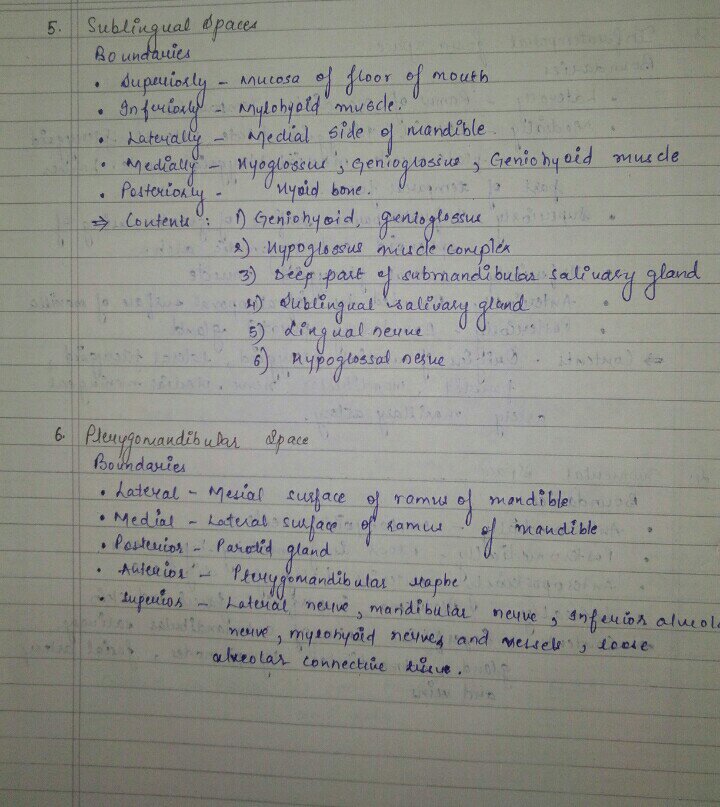 5. Sublingual Spaces
Boundaries
• Superiorly - Mucosa of floor of mouth
• Inferiorly - Mylohyoid muscle.
• Laterally - Medial side of mandible.
• Medially - Hyoglossus, Genioglossus, Geniohyoid muscle
• Posteriorly - Hyoid bone.
⇒ Contents : 1) Geniohyoid, genioglossus
2) Hypoglossus muscle complex
3) Deep part of submandibular salivary gland
4) Sublingual salivary gland
5) Lingual nerve
6) Hypoglossal nerve
6. Pterygomandibular Space
Boundaries
• Lateral - Mesial surface of ramus of mandible
• Medial - Lateral surface of ramus of mandible
• Posterior - Parotid gland
• Anterior - Pterygomandibular raphe
superior - Lateral nerve, mandibular nerve, Inferior alveol
nerve, mylohyoid nerves and vessels, loose
alveolar connective tissue.